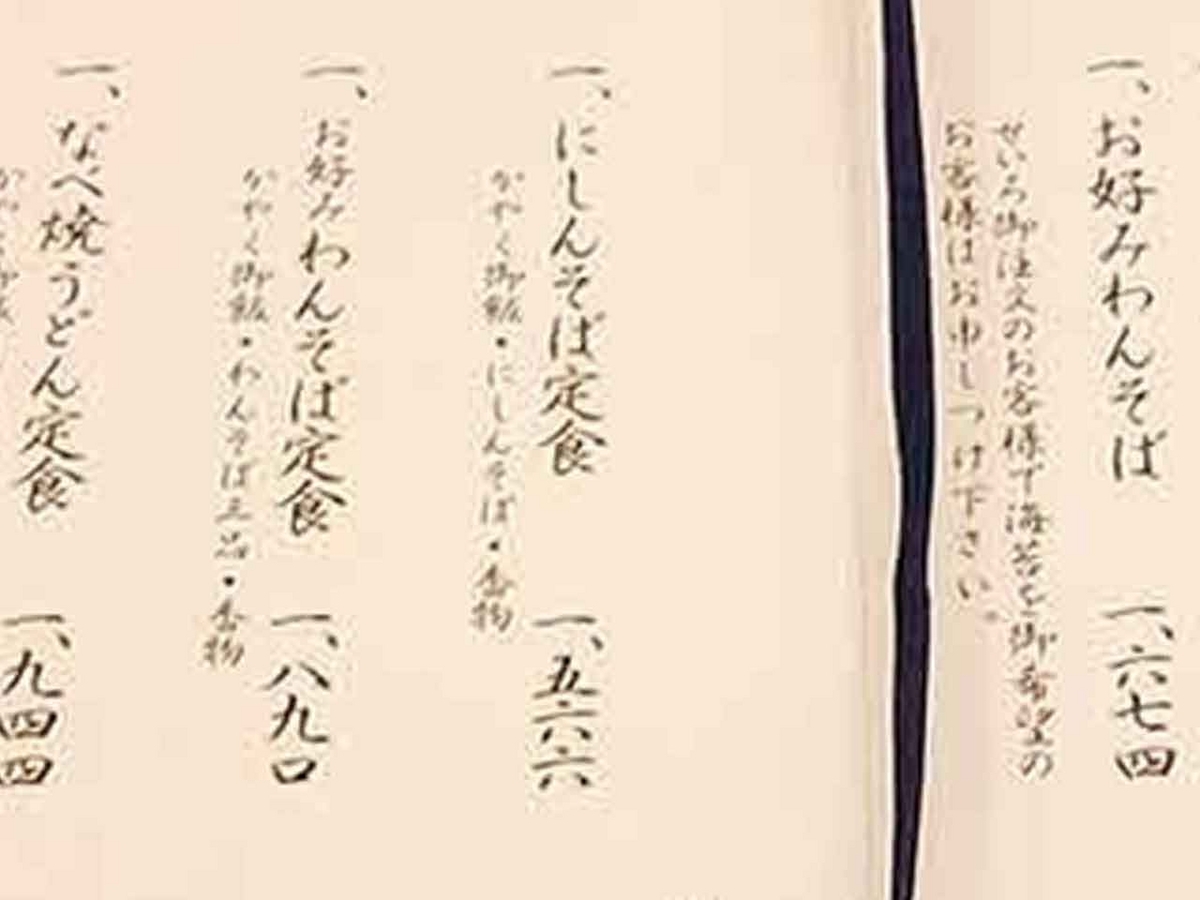 一、お好みわんそば 一、六七四
せいろ御注文のお客様で海苔を御希望の
お客様はお申しつけ下さい。
一、にしんそば定食 一、五六六
かやく御飯・にしんそば・香物
一、お好みわんそば定食 一、八九〇
かやく御飯・わんそば三品・香物
一、なべ焼うどん定食 一、九四四
かやく御飯